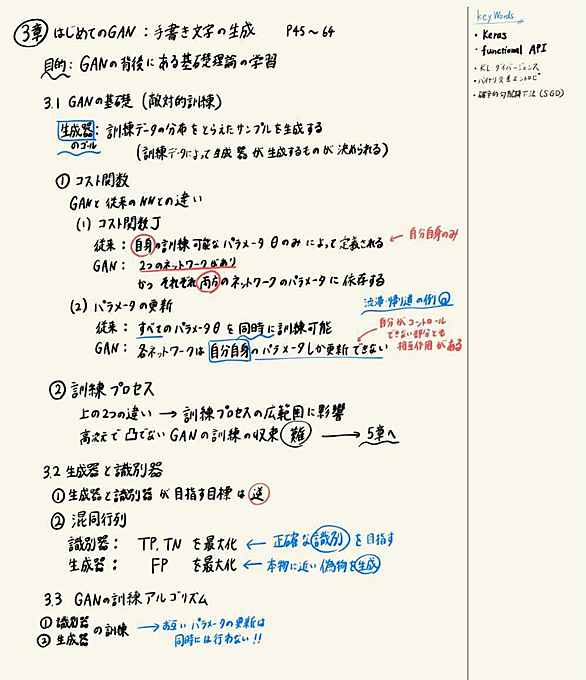 3章 はじめてのGAN：手書き文字の生成 P45～64
目的：GANの背後にある基礎理論の学習
3.1 GANの基礎（敵対的訓練）
生成器：訓練データの分布をとらえたサンプルを生成する
のゴール
（訓練データによって生成器が生成するものが決められる）
① コスト関数
GANと従来のNNとの違い
(1) コスト関数J
従来：自身の訓練可能なパラメータθのみによって定義される ← 自分自身のみ
GAN：2つのネットワークがあり
かつ それぞれ両方のネットワークのパラメータに依存する
(2) パラメータの更新
渋滞・帰り道の例
従来：すべてのパラメータθを同時に訓練可能
GAN：各ネットワークは自分自身のパラメータしか更新できない
自分がコントロール
できない部分とも
相互作用がある
② 訓練プロセス
上の2つの違い → 訓練プロセスの広範囲に影響
高次元で凸でないGANの訓練の収束 難 → 5章へ
3.2 生成器と識別器
① 生成器と識別器が目指す目標は逆
② 混同行列
識別器：TP, TN を最大化 ← 正確な識別を目指す
生成器：FP を最大化 ← 本物に近い偽物を生成
3.3 GANの訓練アルゴリズム
① 識別器
② 生成器 の訓練 → お互いパラメータの更新は
同時には行わない!!
key Words
・Keras
・functional API
・KLダイバージェンス
・バイナリ交差エントロピー
・確率的勾配降下法 (SGD)